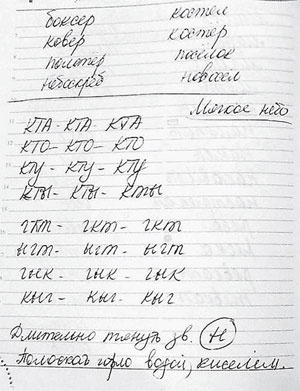 боксер костел
ковер костер
полотер поселок
небоскреб новосел
Мягкое нёбо
КТА - КТА - КТА
КТО - КТО - КТО
КТУ - КТУ - КТУ
КТЫ - КТЫ - КТЫ
гкт - гкт - гкт
ыгт - ыгт - ыгт
гык - гык - гык
кыг - кыг - кыг
Длительно тянуть зв. Н
Полоскать горло водой, киселем.